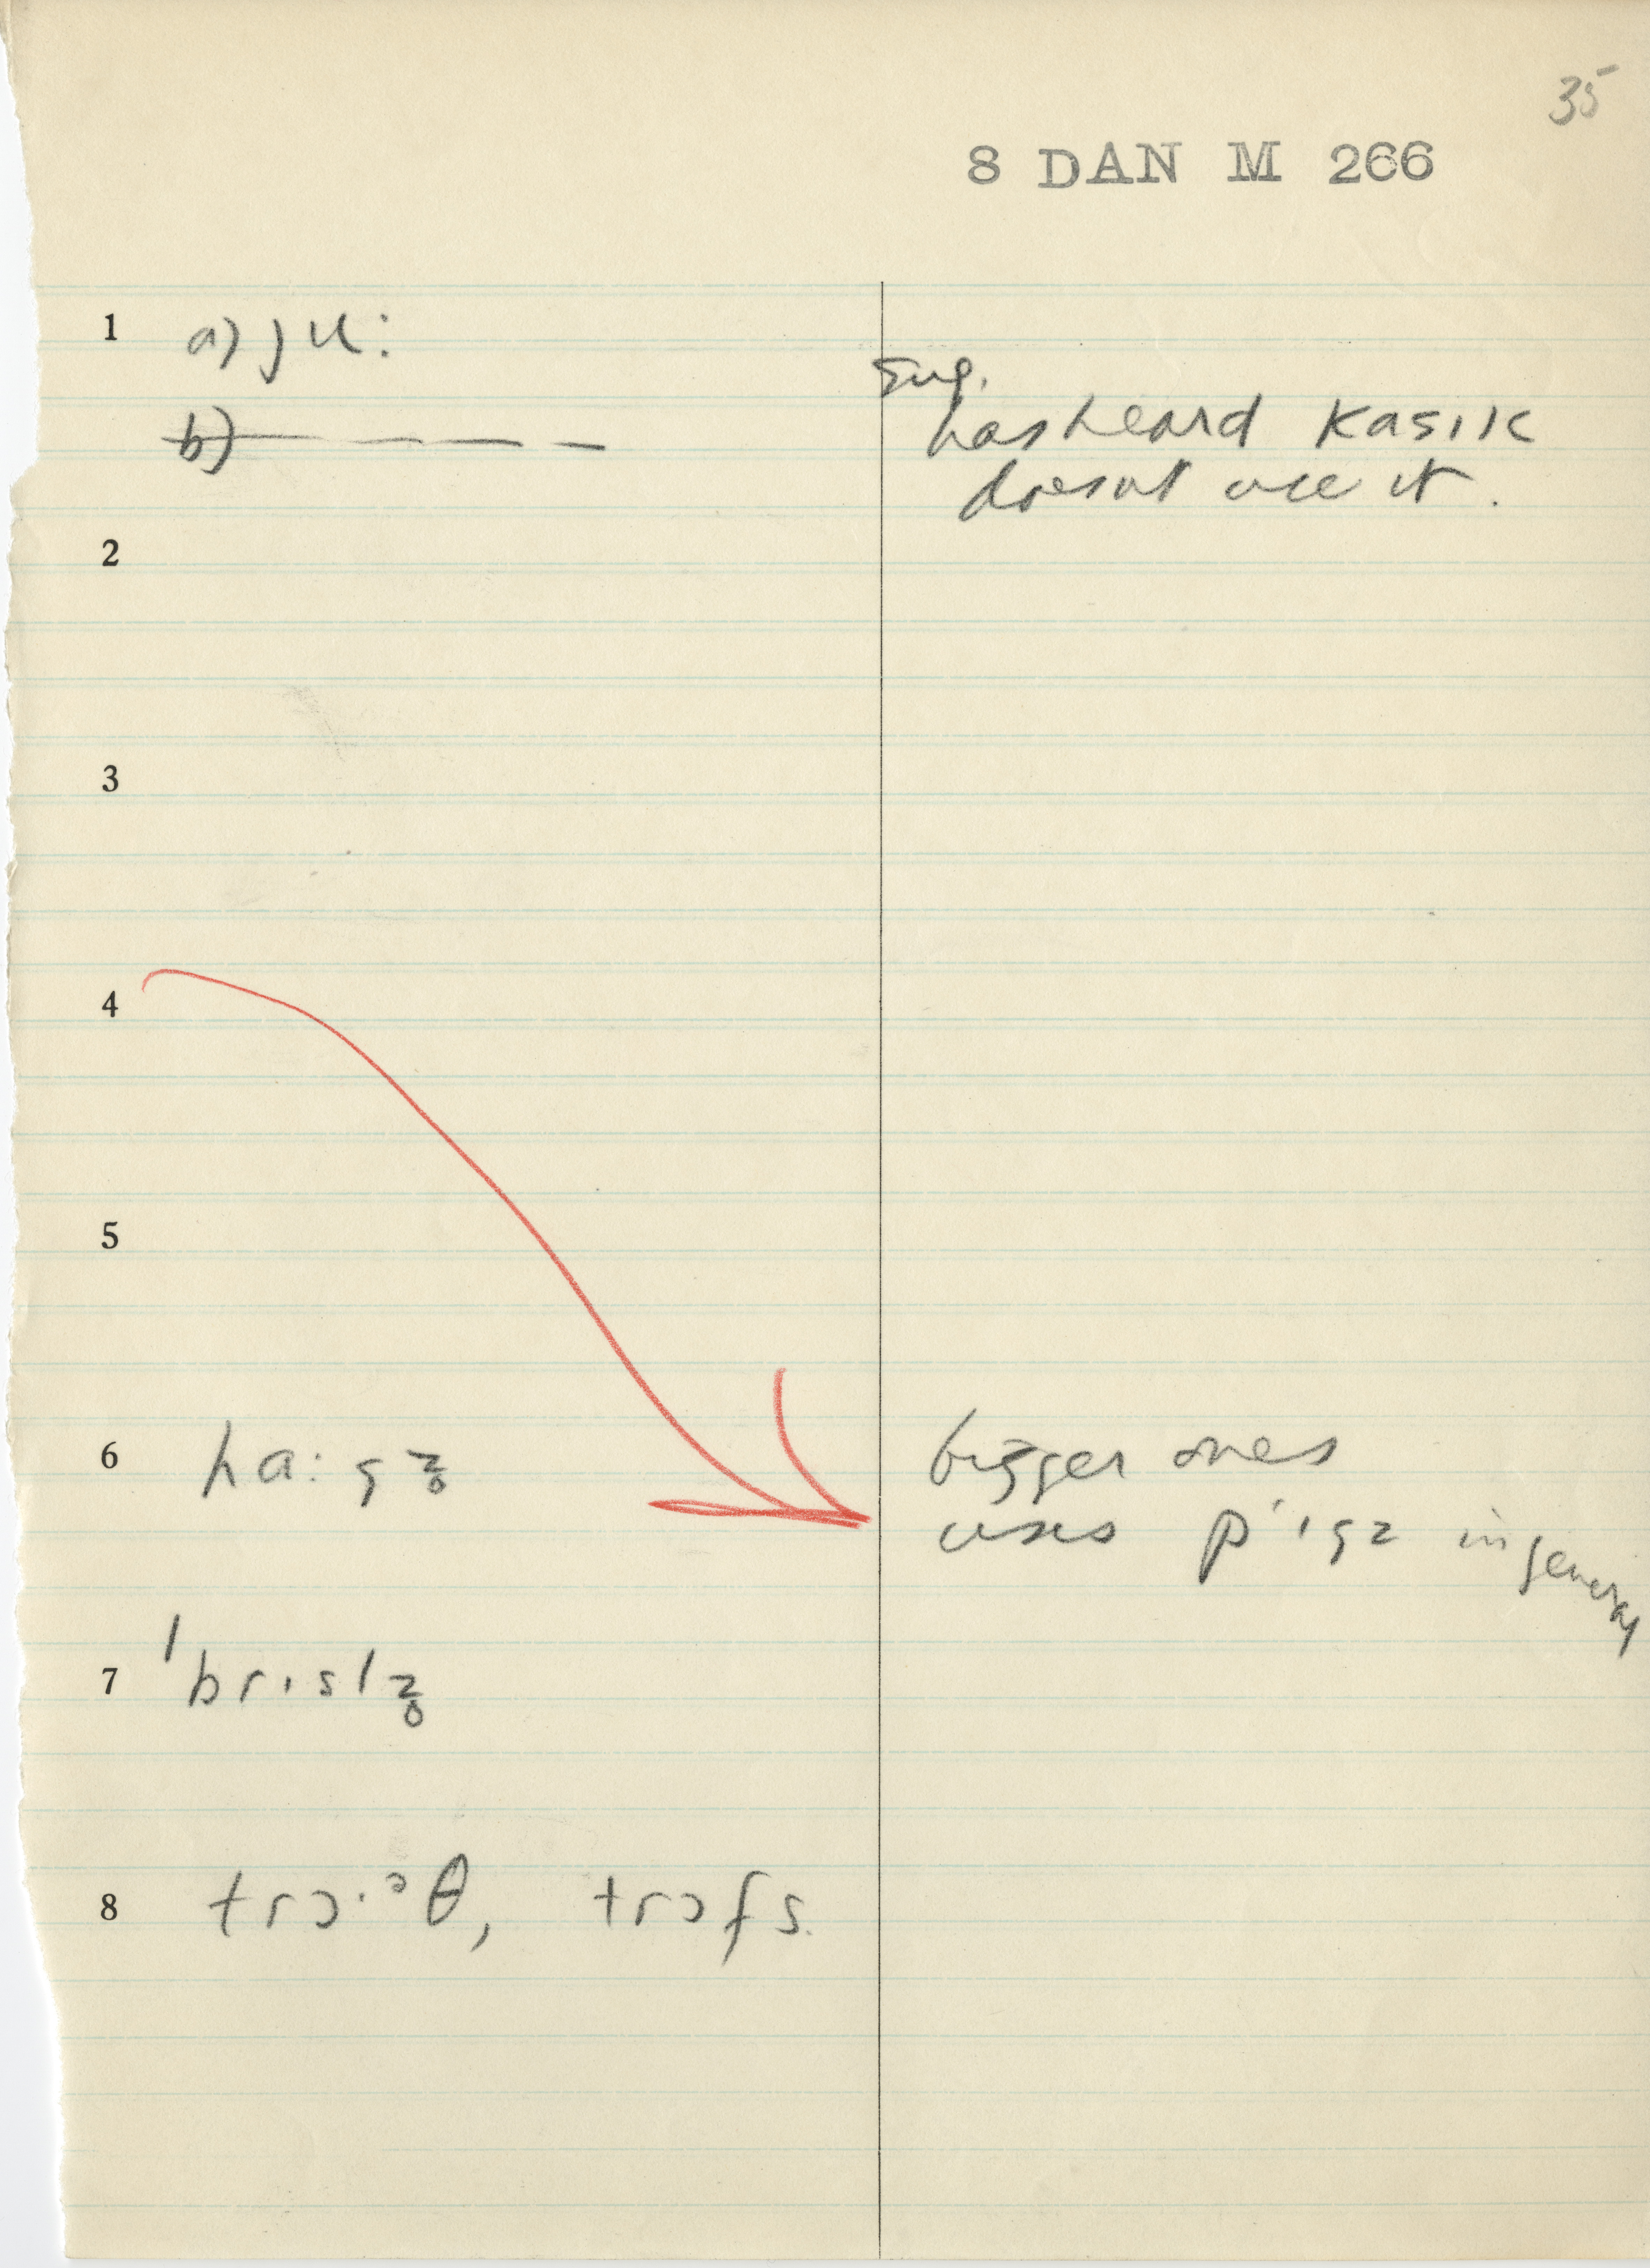 35
8 DAN M 266
1 a) ju:
sug.
b) — — — has heard kasɪk
doesnt use it.
2
3
4
5
6 ha:gz̥ bigger ones
uses p'ɪgz in general
7 'brɪslz̥
8 trɔ·ᵊθ, trɔfs